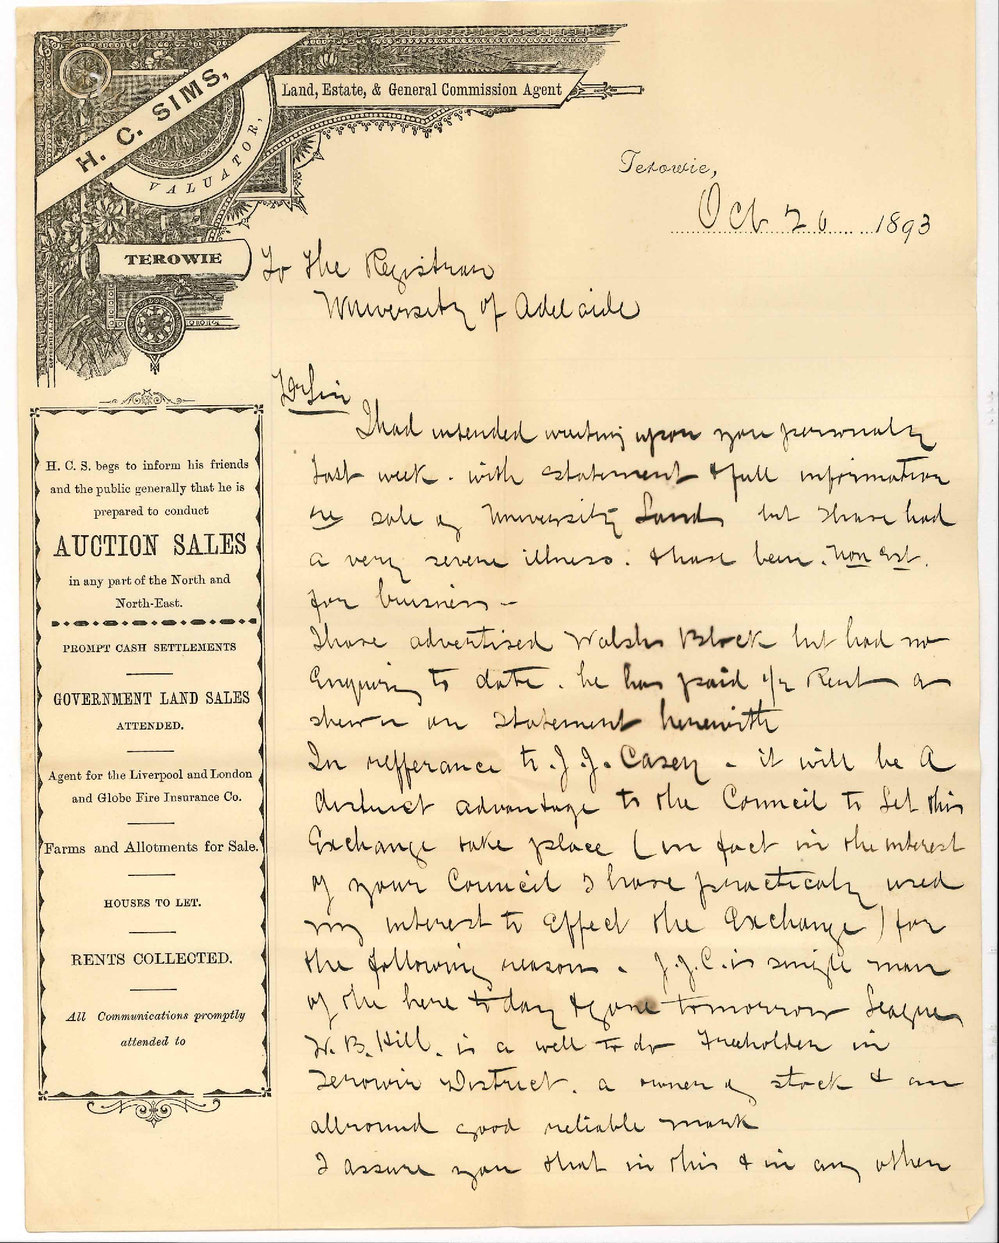 H. C. SIMS,
VALUATOR,
Land, Estate, & General Commission Agent
TEROWIE
Terowie,
Oct 20 1893
To the Registrar
University of Adelaide
Dr Sir
I had intended waiting upon you personally
last week. with statement & full information
re sale of University Land but I have had
a very severe illness. & have been. non est.
for business –
I have advertised Walshs Block but had no
Enquiry to date. he has paid ½ Rent as
shewn on statement herewith
In refferance to. J. J. Casey – it will be A
distinct advantage to the Council to Let this
Exchange take place (in fact in the interest
of your Council I have practicaly used
my interest to Effect the Exchange) for
the following reason. J.J.C. is single man
of the here to day & gone tomorrow League
W. B. Hill. is a well to do Freeholder in
Terowie District. a owner of stock & an
allround good reliable mark
I assure you that in this & in any other
H. C. S. begs to inform his friends
and the public generally that he is
prepared to conduct
AUCTION SALES
in any part of the North and
North-East.
PROMPT CASH SETTLEMENTS
GOVERNMENT LAND SALES
ATTENDED.
Agent for the Liverpool and London
and Globe Fire Insurance Co.
Farms and Allotments for Sale.
HOUSES TO LET.
RENTS COLLECTED.
All Communications promptly
attended to